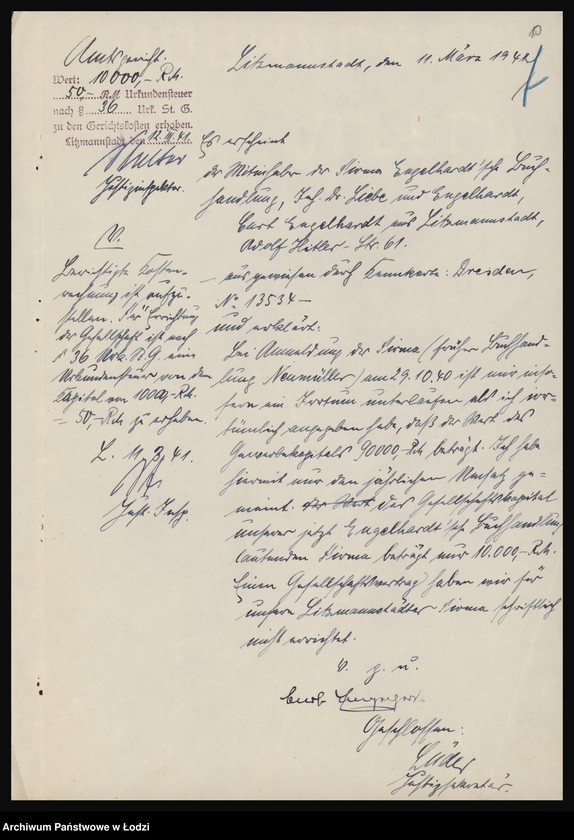 10
Amtsgericht.
Litzmannstadt, den 11. März 1941
Wert: 10000,- Rm.
50,- RM Urkundensteuer
nach § 36 Urk. St. G.
zu den Gerichtskosten erhoben.
Litzmannstadt den 12.III.41.
Justizinspektor.
Es erscheint
der Mitinhaber der Firma Engelhardt'sche Buch-
handlung, Inh. Dr. Liebe und Engelhardt,
Curt Engelhardt aus Litzmannstadt,
Adolf Hitler-Str. 61.
- ausgewiesen durch Kennkarte: Dresden,
No 13534 -
und erklärt:
Bei Anmeldung der Firma (früher Buchhand-
lung Neumüller) am 29.10.40 ist mir inso-
fern ein Irrtum unterlaufen als ich irr-
tümlich angegeben habe, daß der Wert des
Gewerbekapitals 90000,- Rm. beträgt. Ich habe
hiermit nur den jährlichen Umsatz ge-
meint. der Wert Das Gesellschaftskapital
unserer jetzt Engelhardt'sche Buchhandlung
lautenden Firma beträgt nur 10.000,- Rm.
Einen Gesellschaftsvertrag haben wir für
unsere Litzmannstädter Firma schriftlich
nicht errichtet.
v. g. u.
Curt
Geschlossen:
Lüder
Justizsekretär.
V.
Berichtigte Kosten-
rechnung ist aufzu-
stellen. Für Errichtung
der Gesellschaft ist nach
§ 36 Urk. St. G. eine
Urkundensteuer von dem
Kapital von 10000,- Rm.
= 50,- Rm. zu erheben.
L. 11.3.41.
Just. Insp.
Archiwum Państwowe w Łodzi